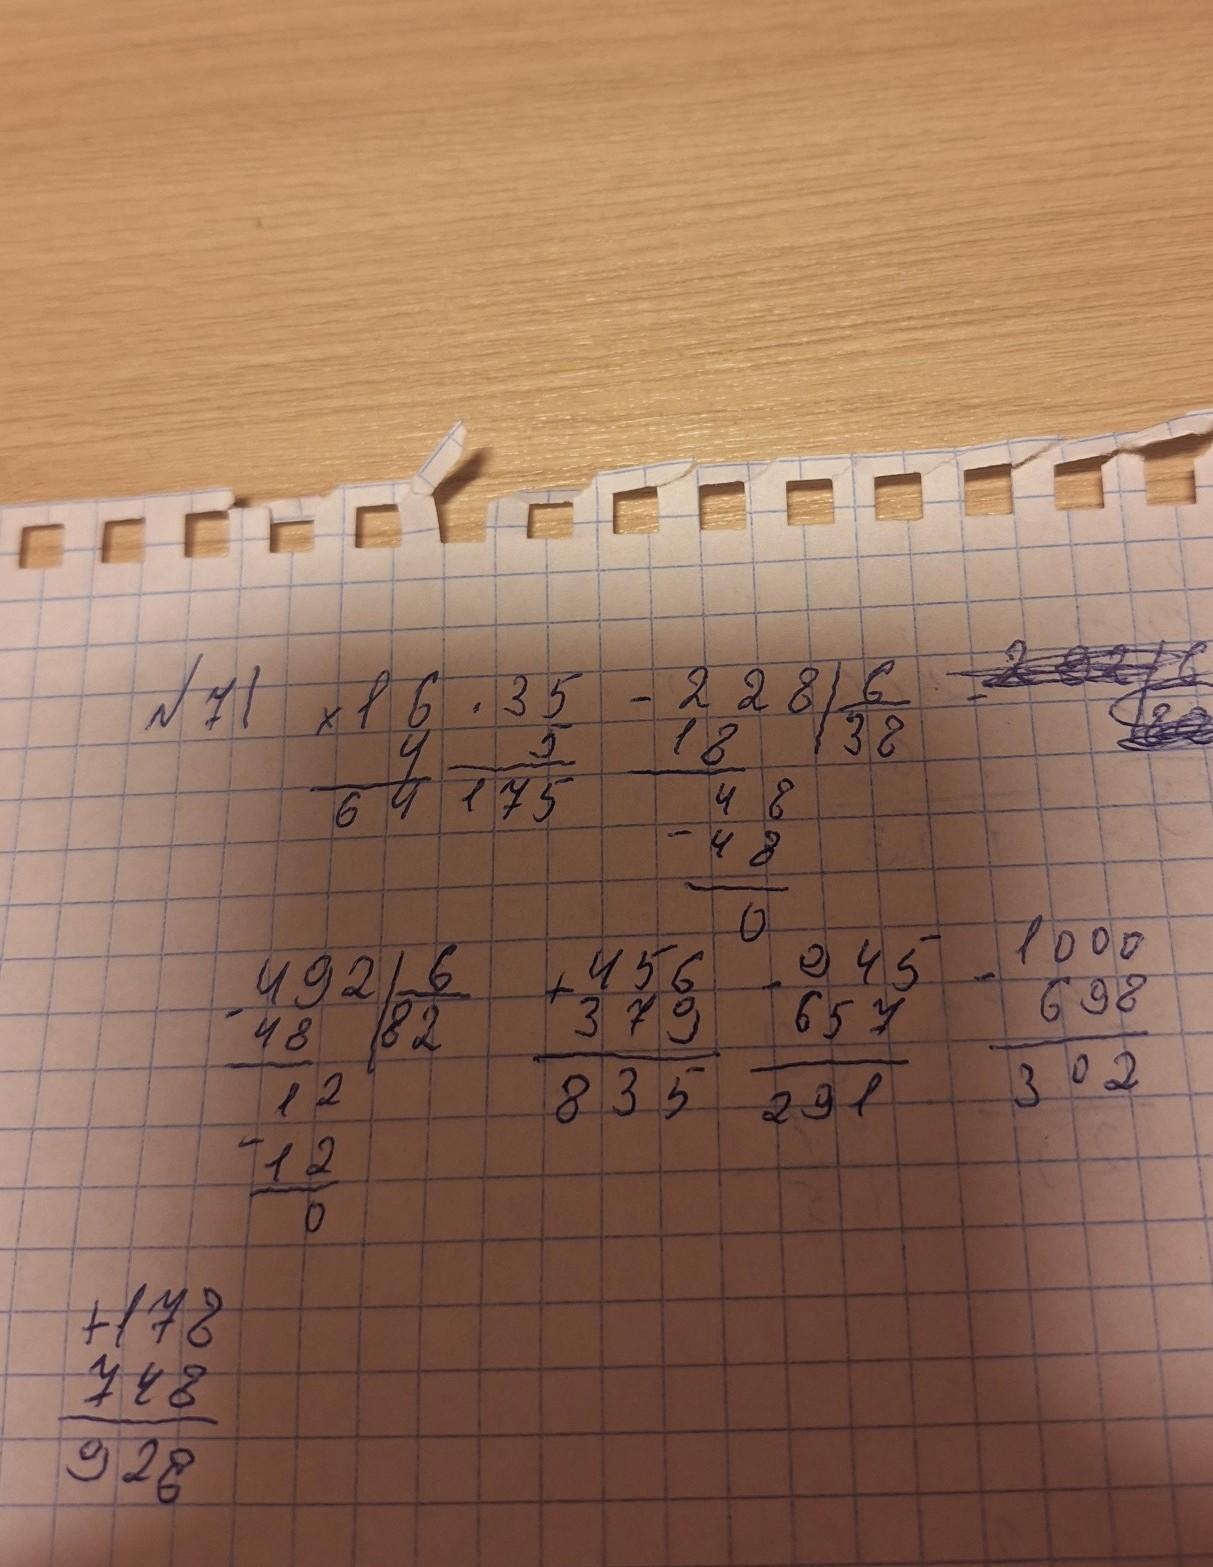 № 71 ×16 · 35 - 228 | 6
4 5 18 | 38
64 175 48
- 48
0
- 492 | 6 + 456 - 945 - 1000
48 | 82 379 657 698
12 835 291 302
- 12
0
+ 178
748
928